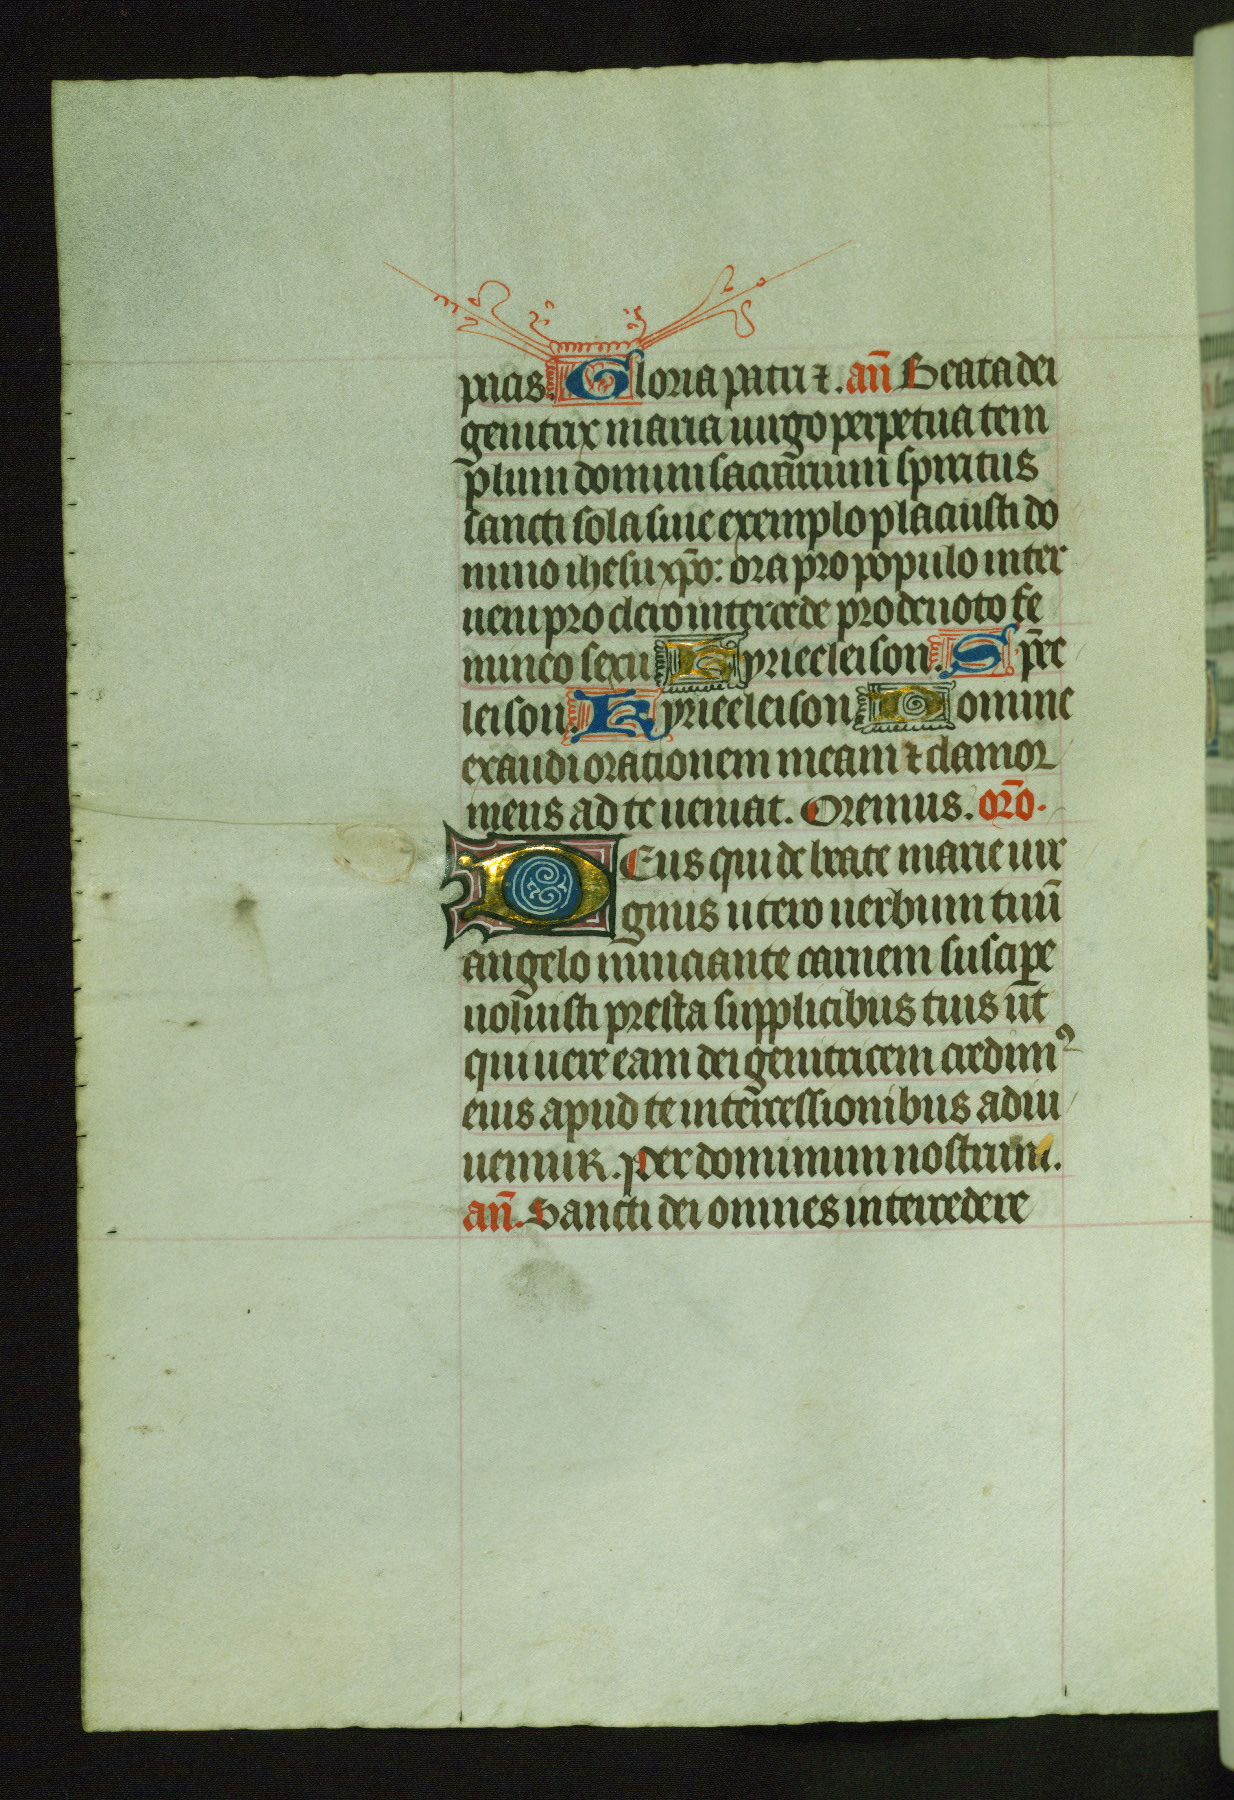 pacis. Gloria patri ⁊. an̄ Beata dei
genitrix maria uirgo perpetua tem
plum domini sacrarium spiritus
sancti sola sine exemplo placuisti do
mino ihesu xp̄o: ora pro populo inter
ueni pro clero intercede pro deuoto fe
mineo sexu Kyrieeleison. Xp̄ec
leison. Kyrieeleison Domine
exaudi orationem meam ⁊ clamor
meus ad te ueniat. Oremus. orō.
DEus qui de beate marie uir
ginis utero uerbum tuū
angelo nunciante carnem suscipe
uoluisti presta supplicibus tuis ut
qui uere eam dei genitricem credimꝰ
eius apud te intercessionibus adiu
uemur. per dominum nostrum.
an̄. Sancti dei omnes intercedere